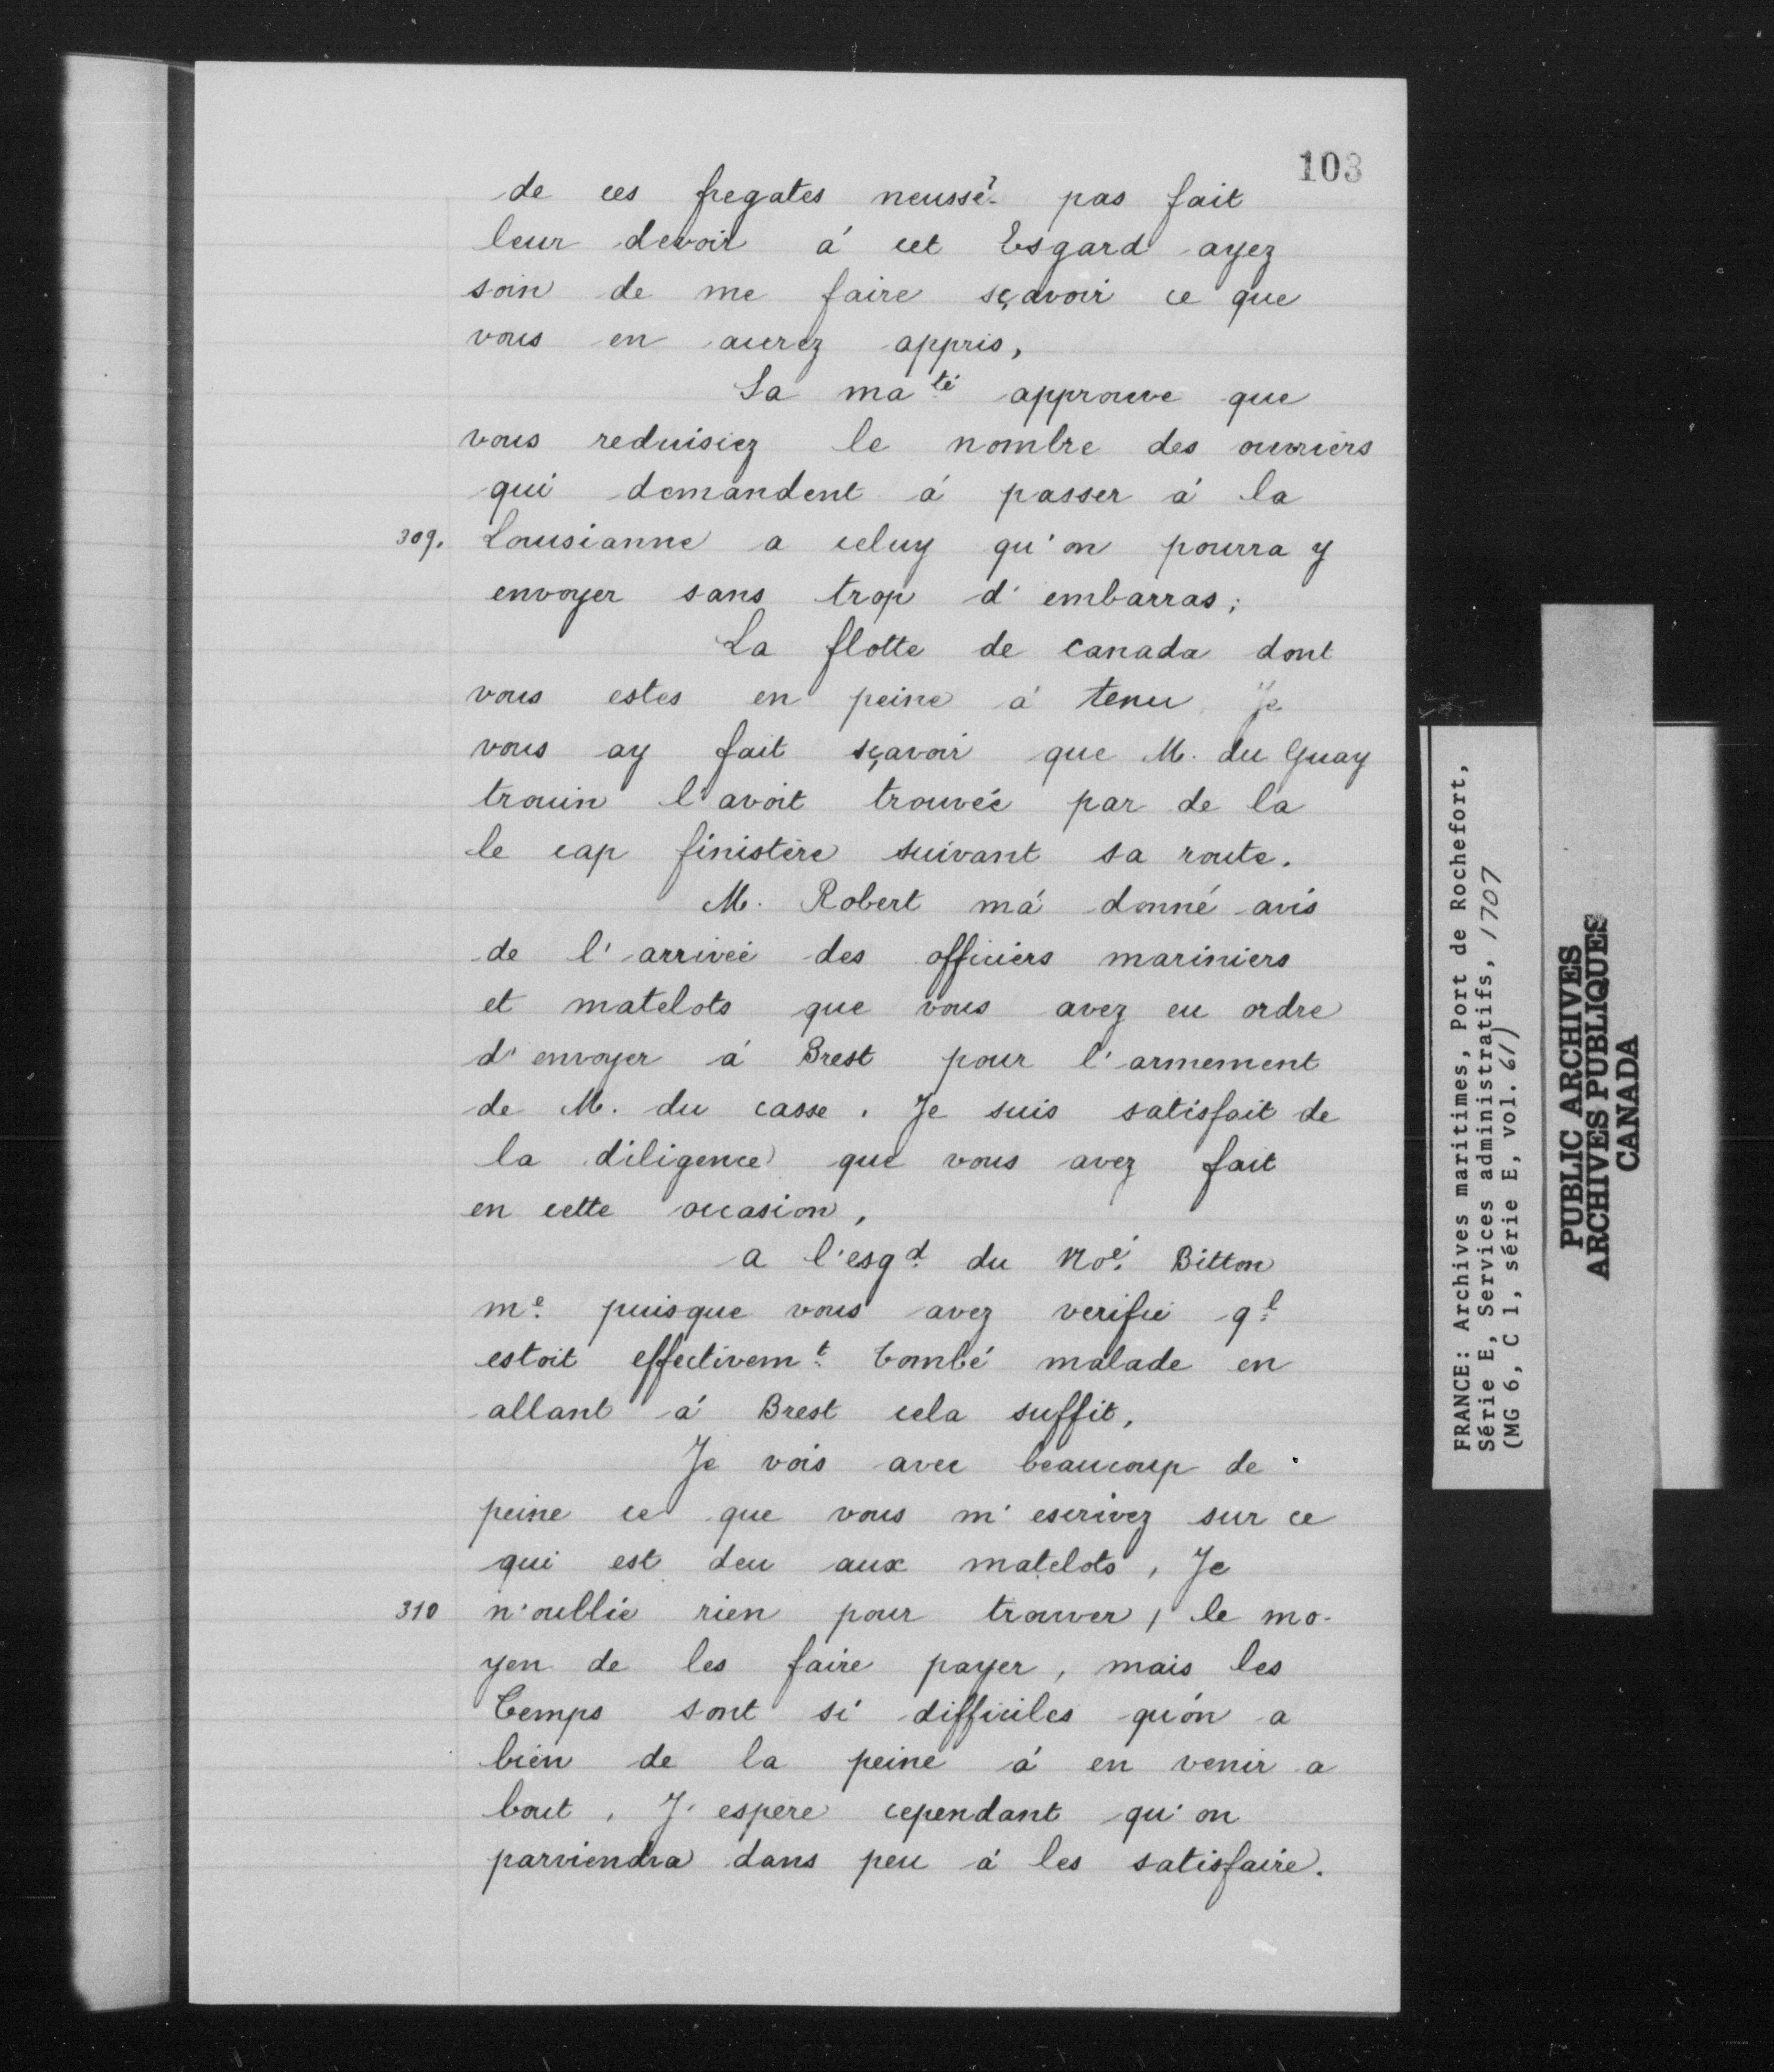 103
de ces fregates neussé- pas fait
leur devoir á cet Esgard ayez
soin de me faire sçavoir ce que
vous en aurez appris,
Sa ma té approuve que
vous reduisiez le nombre des ouvriers
qui demandent á passer á la
309. Lousianne a celuy qu'on pourra y
envoyer sans trop d'embarras;
La flotte de Canada dont
vous estes en peine á tenu Je
vous ay fait sçavoir que M. du Guay
trouin l'avoit trouvée par de la
le cap finistère suivant sa route.
M. Robert má donné avis
de l'arrivée des officiers mariniers
et matelots que vous avez eu ordre
d'envoyer á Brest pour l'armement
de M. du casse. Je suis satisfait de
la diligence que vous avez fait
en cette occasion,
a l'esgd du Noé Bitton
me puisque vous avez verifié ql
estoit effectivemt tombé malade en
allant á Brest cela suffit,
Je vois avec beaucoup de
peine ce que vous m'escrivez sur ce
qui est deu aux matelots, Je
310 n'oublie rien pour trouver, le mo-
yen de les faire payer, mais les
temps sont si difficiles qu'on a
bien de la peine á en venir a
bout. J'espère cependant qu'on
parviendra dans peu á les satisfaire.
FRANCE: Archives maritimes, Port de Rochefort,
Série E, Services administratifs, 1707
(MG 6, C 1, série E, vol. 61)
PUBLIC ARCHIVES
ARCHIVES PUBLIQUES
CANADA